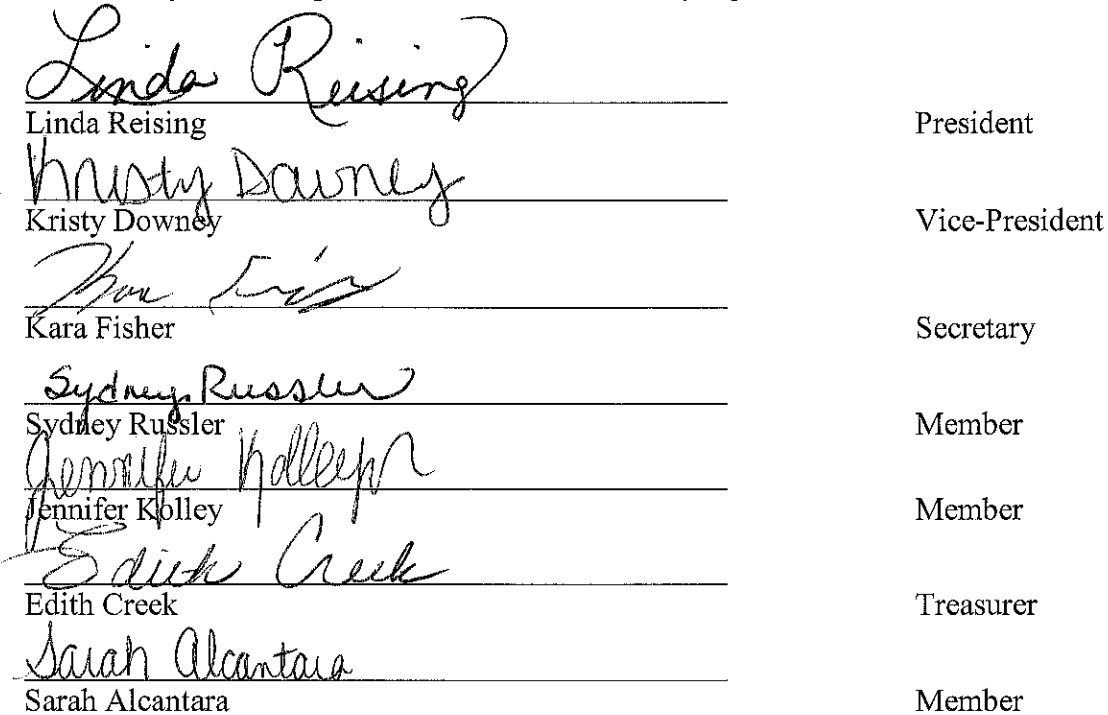 Linda Reising
Linda Reising President
Kristy Downey
Kristy Downey Vice-President
Kara
Kara Fisher Secretary
Sydney Russler
Sydney Russler Member
Jennifer Kolley
Jennifer Kolley Member
Edith Creek
Edith Creek Treasurer
Sarah Alcantara
Sarah Alcantara Member